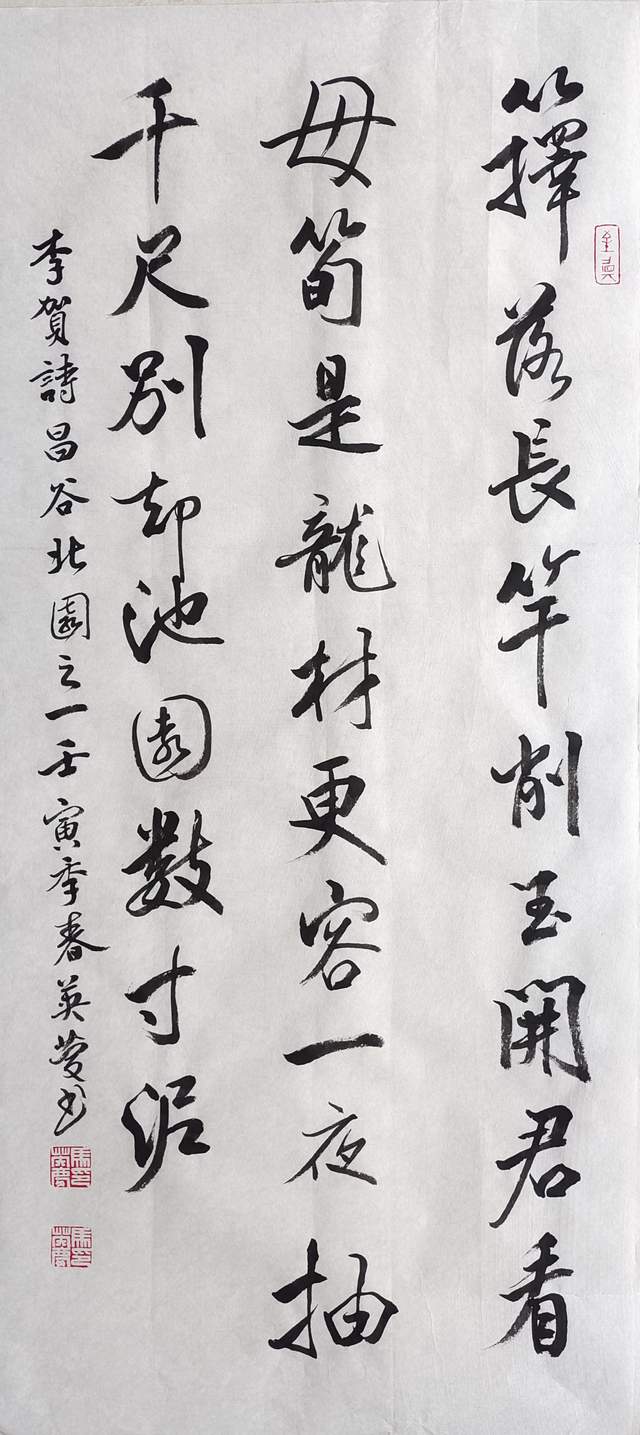 籜落長竿削玉開君看
母筍是龍材更容一夜抽
千尺別却池園數寸泥
李賀詩昌谷北園之一壬寅季春英夢书